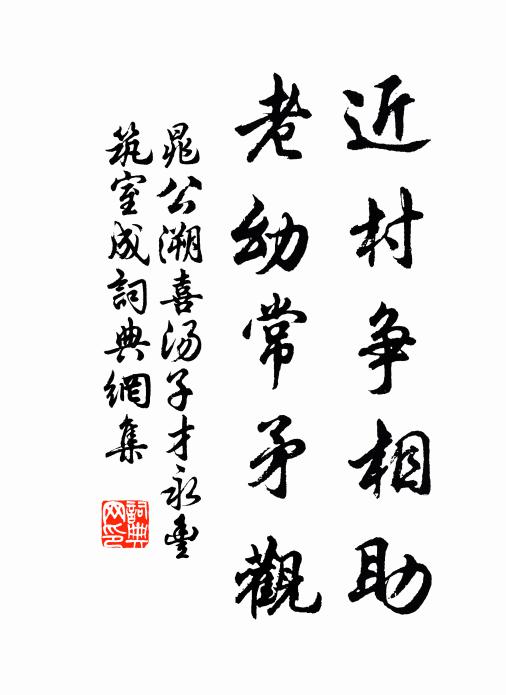 近村争相助
老幼常矛觀
晁公溯喜汤子才永豊
筑室成詞典網集
詞典网印